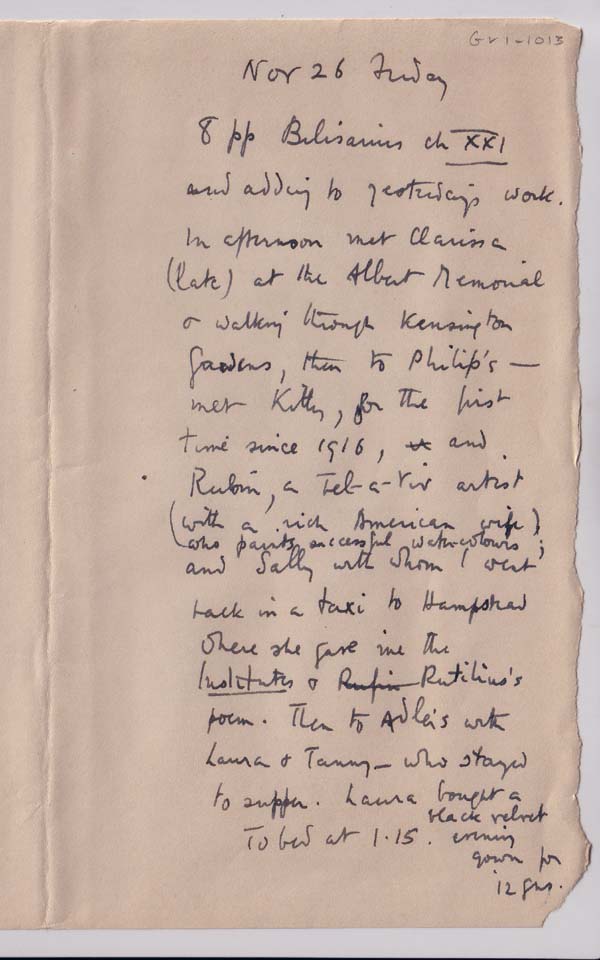 Gv1-1013
Nov 26 Friday
8 pp Belisarius ch XXI
and adding to yesterday's work.
In afternoon met Clarissa
(late) at the Albert Memorial
& walking through Kensington
Gardens, then to Philip's —
met Kitty, for the first
time since 1916, and
Rubin, a Tel-a-Viv artist
(with a rich American wife)
who paints successful water-colours;
and Sally with whom I went
back in a taxi to Hampstead
where she gave me the
Institutes & Rufin Rutilius's
poem. Then to Adler's with
Laura & Tanny — who stayed
to supper. Laura bought a
black velvet
To bed at 1.15. evening
gown for
12 gns.